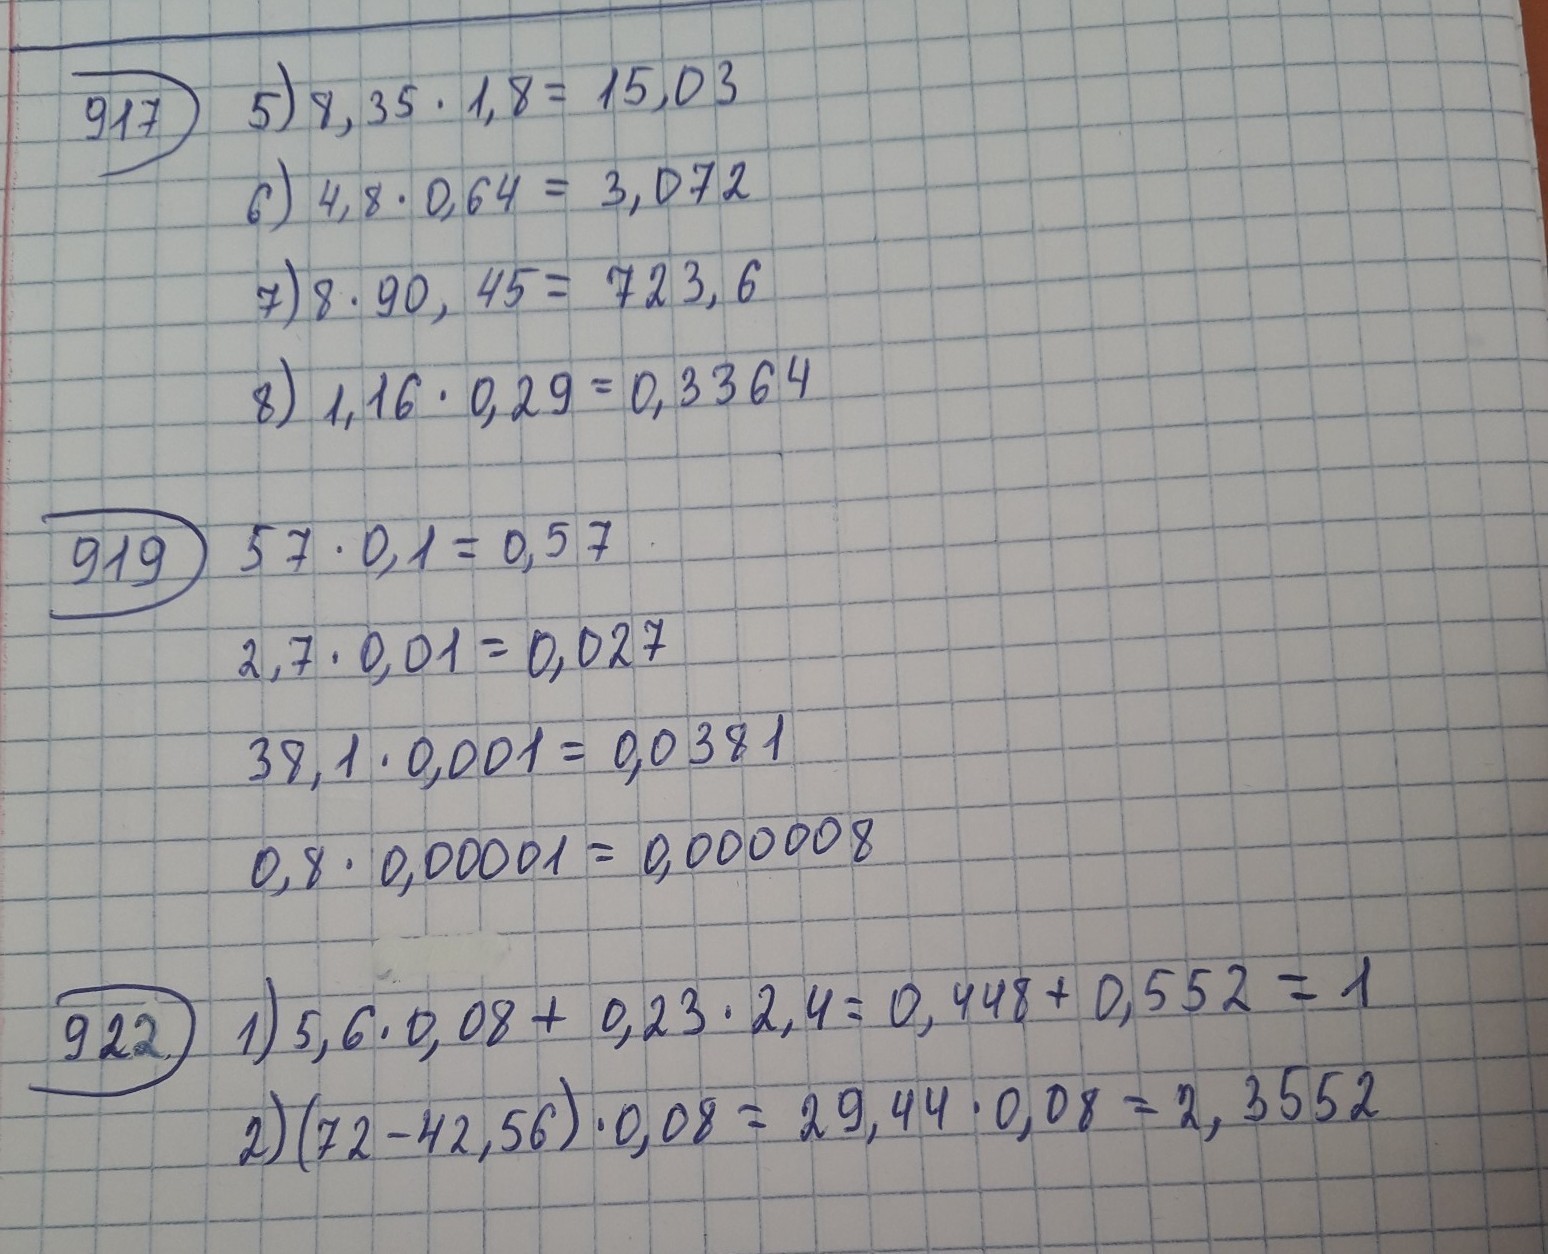 917 5) 8,35 · 1,8 = 15,03
6) 4,8 · 0,64 = 3,072
7) 8 · 90,45 = 723,6
8) 1,16 · 0,29 = 0,3364
919 57 · 0,1 = 0,57
2,7 · 0,01 = 0,027
38,1 · 0,001 = 0,0381
0,8 · 0,00001 = 0,000008
922 1) 5,6 · 0,08 + 0,23 · 2,4 = 0,448 + 0,552 = 1
2) (72 - 42,56) · 0,08 = 29,44 · 0,08 = 2,3552